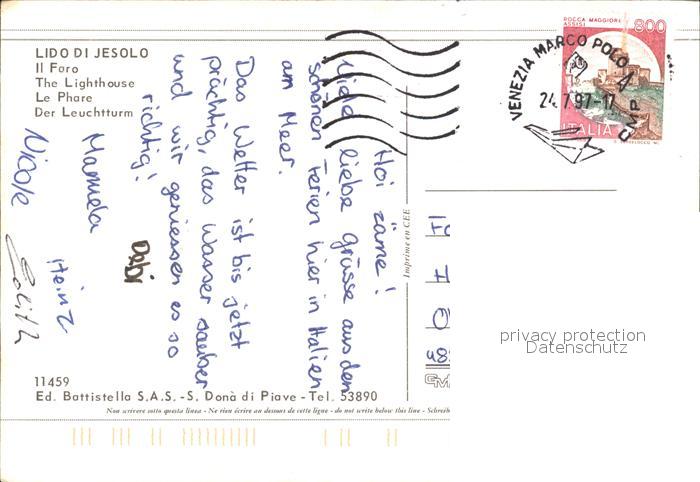 LIDO DI JESOLO
Il Faro
The Lighthouse
Le Phare
Der Leuchtturm
Hoi zäme!
Viele liebe Grüsse aus den
schönen Ferien hier in Italien
am Meer.
Das Wetter ist bis jetzt
prächtig, das Wasser sauber
und wir geniessen es so
richtig!
Manuela
Nicole
Heinz
Dabi
Edith
11459
Ed. Battistella S.A.S. - S. Donà di Piave - Tel. 53890
Non scrivere sotto questa linea - Ne rien écrire au dessous de cette ligne - do not write below this line - Schreib
Imprimé en CEE
ROCCA MAGGIORE
ASSISI
800
ITALIA
VENEZIA MARCO POLO CMP
24.7.97-17
privacy protection
Datenschutz